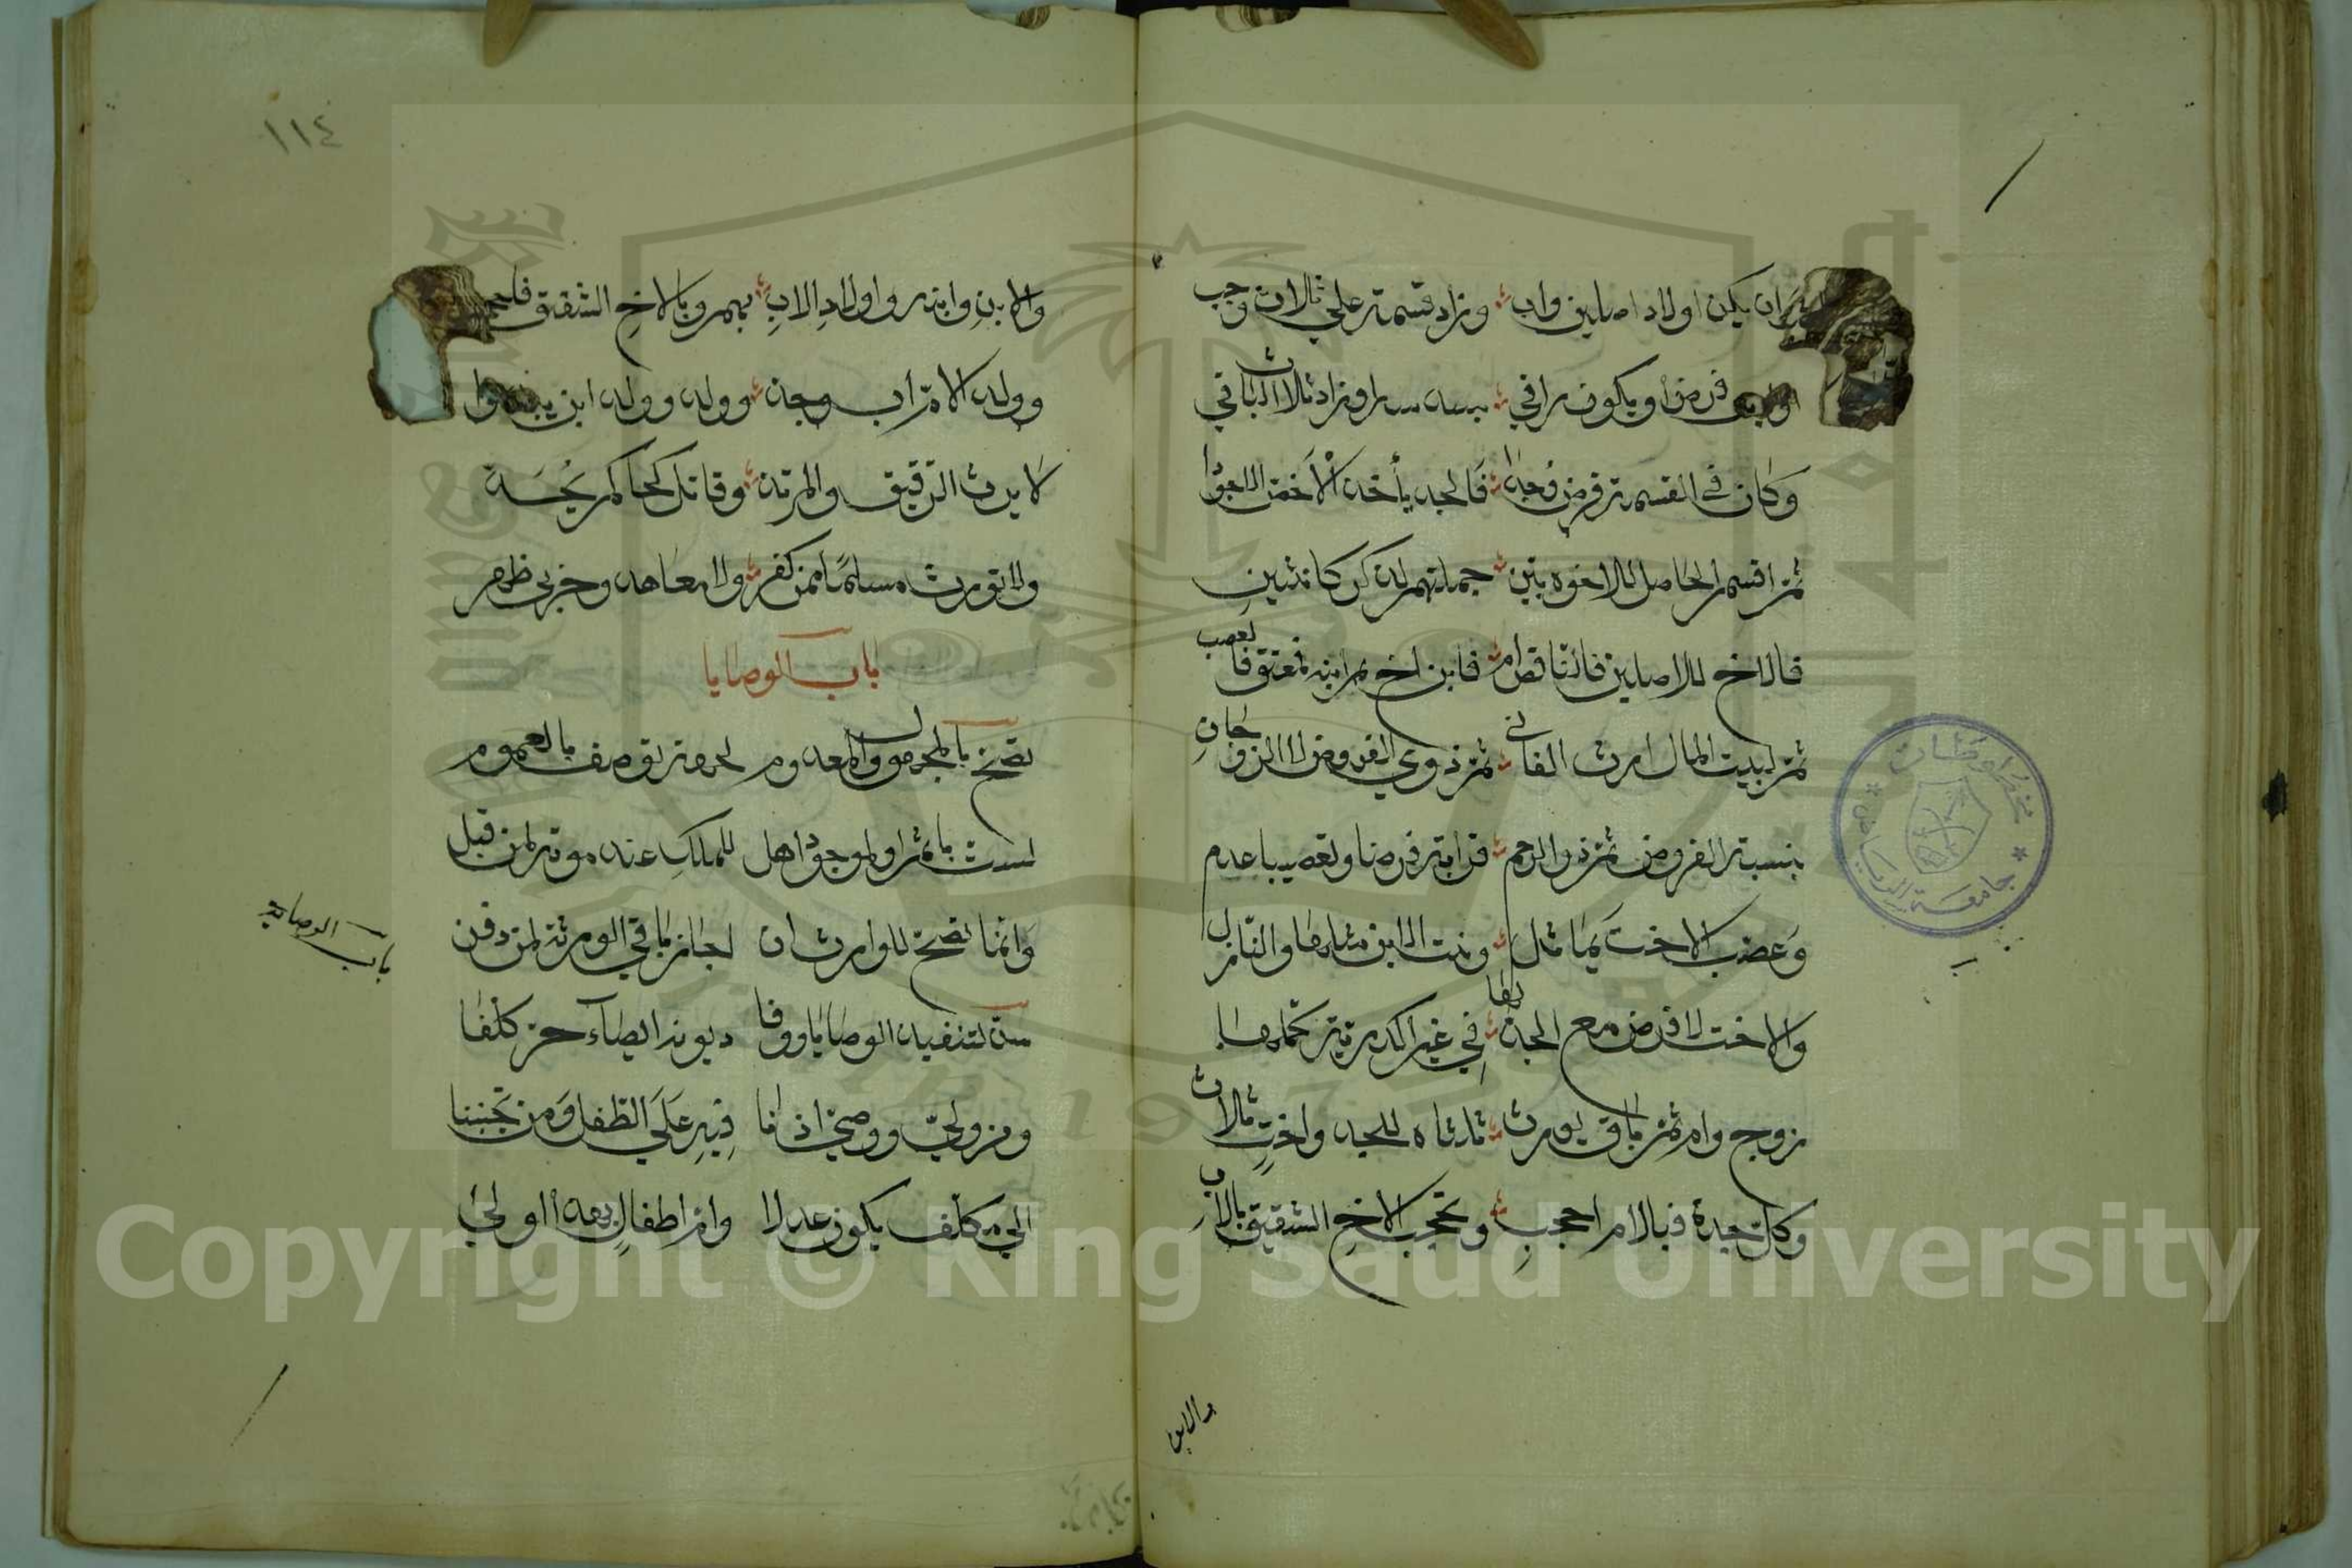 ان يكن اولاد اصلين واب وزاد قسمته علي ثلاث وجب
فرض او يكون راقي بسدسه او زاد ثلاث الباقي
وكان في القسمة فرض وجدا فالجد يأخذ الاخف الاجودا
ثم اقسم الحاصل للاخوة بين جملتهم لذكر كانثيين
فالاخ للاصلين فالناقص ام فابن اخ ثم ابنه فمعتق فاعصب
ثم لبيت المال ارث الفاني ثم ذوي الفروض لا الزوجان
بنسبة الفروض ثم ذو الرحم قرابة فرضا وتعصيبا عدم
وعصب الاخت بما تماثل وبنت الابن مثلها والنازل
والاخت لا فرض مع الجد لها في غير اكدرية كملها
زوج وام ثم باق يورث ثلثاه للجد واخت ثلاث
وكل جدة فبالام احجب وتحجب الاخ الشقيق بالاب
والابن
١١٤
والابن وابنه واولاد الاب بهم وبالاخ الشقيق
وولد الام اب وجد وولد وولد ابن
لا يرث الرقيق والمرتد وقاتل كحاكم يحد
ولا تورث مسلما ممن كفر ولا معاهد وحربي ظهر
باب الوصايا
تصح بالمجهول والمعدوم لجهة توصف بالعموم
ليست باثم او لموجود اهل للملك عند موته لمن قتل
وانما تصح للوارث ان اجاز باقي الورثة لمن دفن
باب الوصايا
سن لتنفيذ الوصايا ووفا ديونه ايصاء حر كلفا
ومن ولي ووصي اذنا فيه علي الطفل ومن تجننا
الي مكلف يكون عدلا وام اطفال بهذا اولي
مخطوطات
جامعة الرياض
Copyright © King Saud University